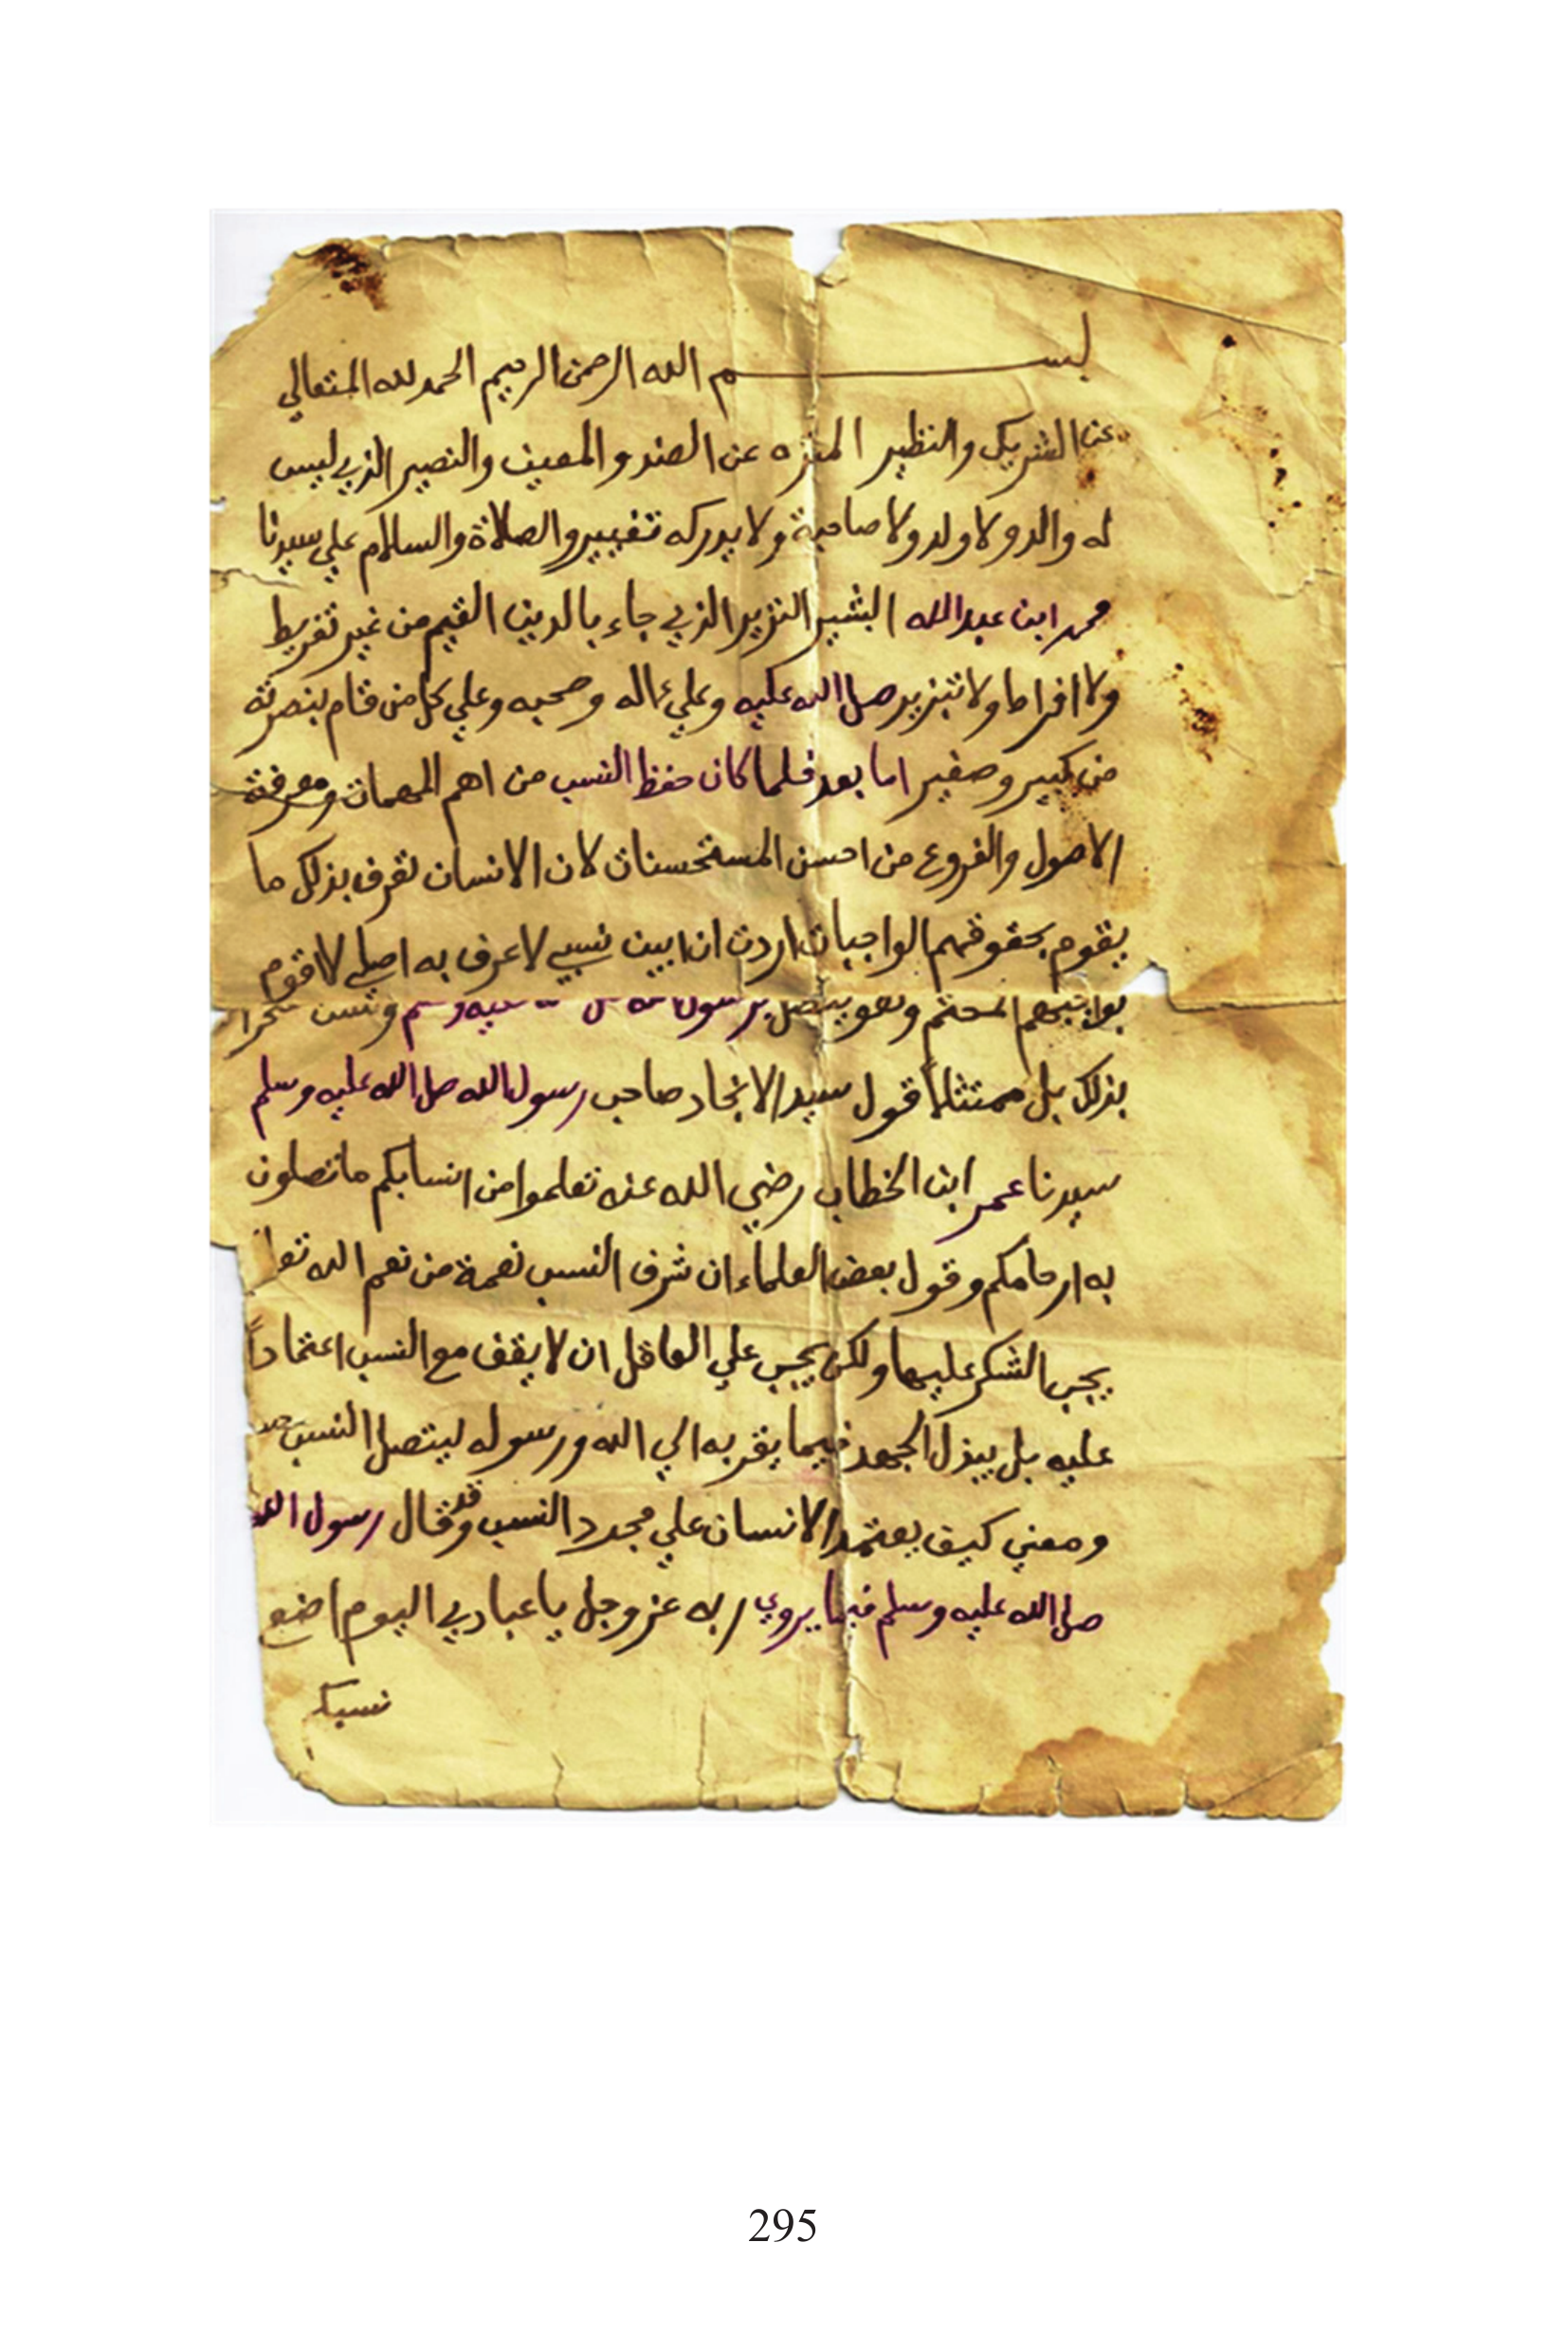 بسم الله الرحمن الرحيم الحمد لله المتعالي
عن الشريك والنظير المنزه عن الضد والمعين والنصير الذي ليس
له والد ولا ولد ولا صاحبة ولا يدركه تغيير والصلاة والسلام علي سيدنا
محمد ابن عبدالله البشير النذير الذي جاء بالدين القيم من غير تفريط
ولا افراط ولا تبذير صل الله عليه وعلي ءاله وصحبه وعلي كل من قام بنصرته
من كبير وصغير اما بعد فلما كان حفظ النسب من اهم المهمات ومعرفة
الاصول والفروع من احسن المستحسنات لان الانسان تعرف بذلك ما
يقوم بحقوقهم الواجبات اردت ان ابين نسبي لاعرف به اصلي لاقوم
بواجبهم المحتم وهو يتصل برسول الله صل الله عليه وسلم ولست
بذلك بل ممتثلاً قول سيد الانجاد صاحب رسول الله صل الله عليه وسلم
سيدنا عمر ابن الخطاب رضي الله عنه تعلموا من انسابكم ماتصلون
به ارحامكم وقول بعض العلماء ان شرف النسب نعمة من نعم الله تعا
يجب الشكر عليها ولكن يجب علي العاقل ان لا يقف مع النسب اعتماداً
عليه بل يبذل الجهد فيما يقربه الي الله ورسوله ليتصل النسب
ومعني كيف يعتمد الانسان علي مجرد النسب وقد قال رسول الله
صل الله عليه وسلم فيما يروي ربه عز وجل يا عبادي اليوم اضع
نسبكم
295